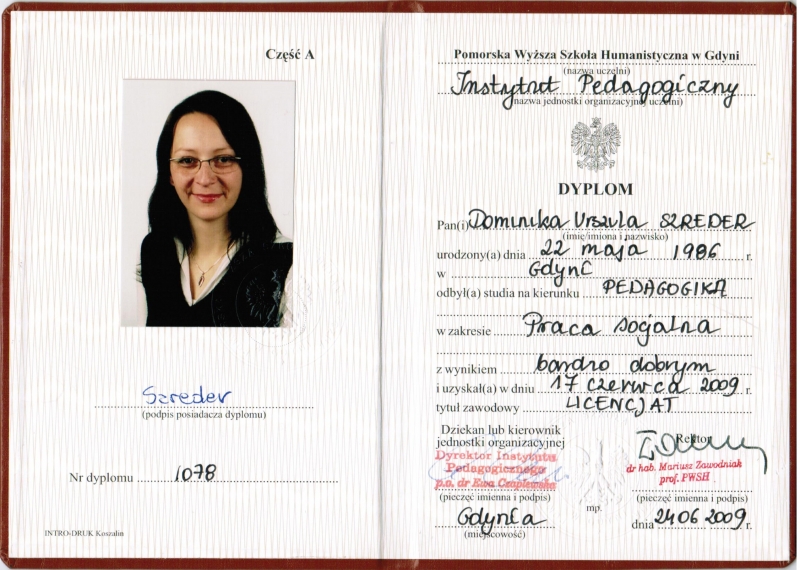 Część A
Szreder
(podpis posiadacza dyplomu)
Nr dyplomu 1078
INTRO-DRUK Koszalin
Pomorska Wyższa Szkoła Humanistyczna w Gdyni
(nazwa uczelni)
Instytut Pedagogiczny
(nazwa jednostki organizacyjnej uczelni)
DYPLOM
Pan(i) Dominika Urszula SZREDER
(imię/imiona i nazwisko)
urodzony(a) dnia 22 maja 1986 r.
w Gdyni
odbył(a) studia na kierunku PEDAGOGIKA
w zakresie Praca socjalna
z wynikiem bardzo dobrym
i uzyskał(a) w dniu 17 czerwca 2009 r.
tytuł zawodowy LICENCJAT
Dziekan lub kierownik
jednostki organizacyjnej
Dyrektor Instytutu
Pedagogicznego
p.o. dr Ewa Czaplewska
(pieczęć imienna i podpis)
Gdynia
(miejscowość)
mp.
Rektor
dr hab. Mariusz Zawodniak
prof. PWSH
(pieczęć imienna i podpis)
dnia 24 06 2009 r.